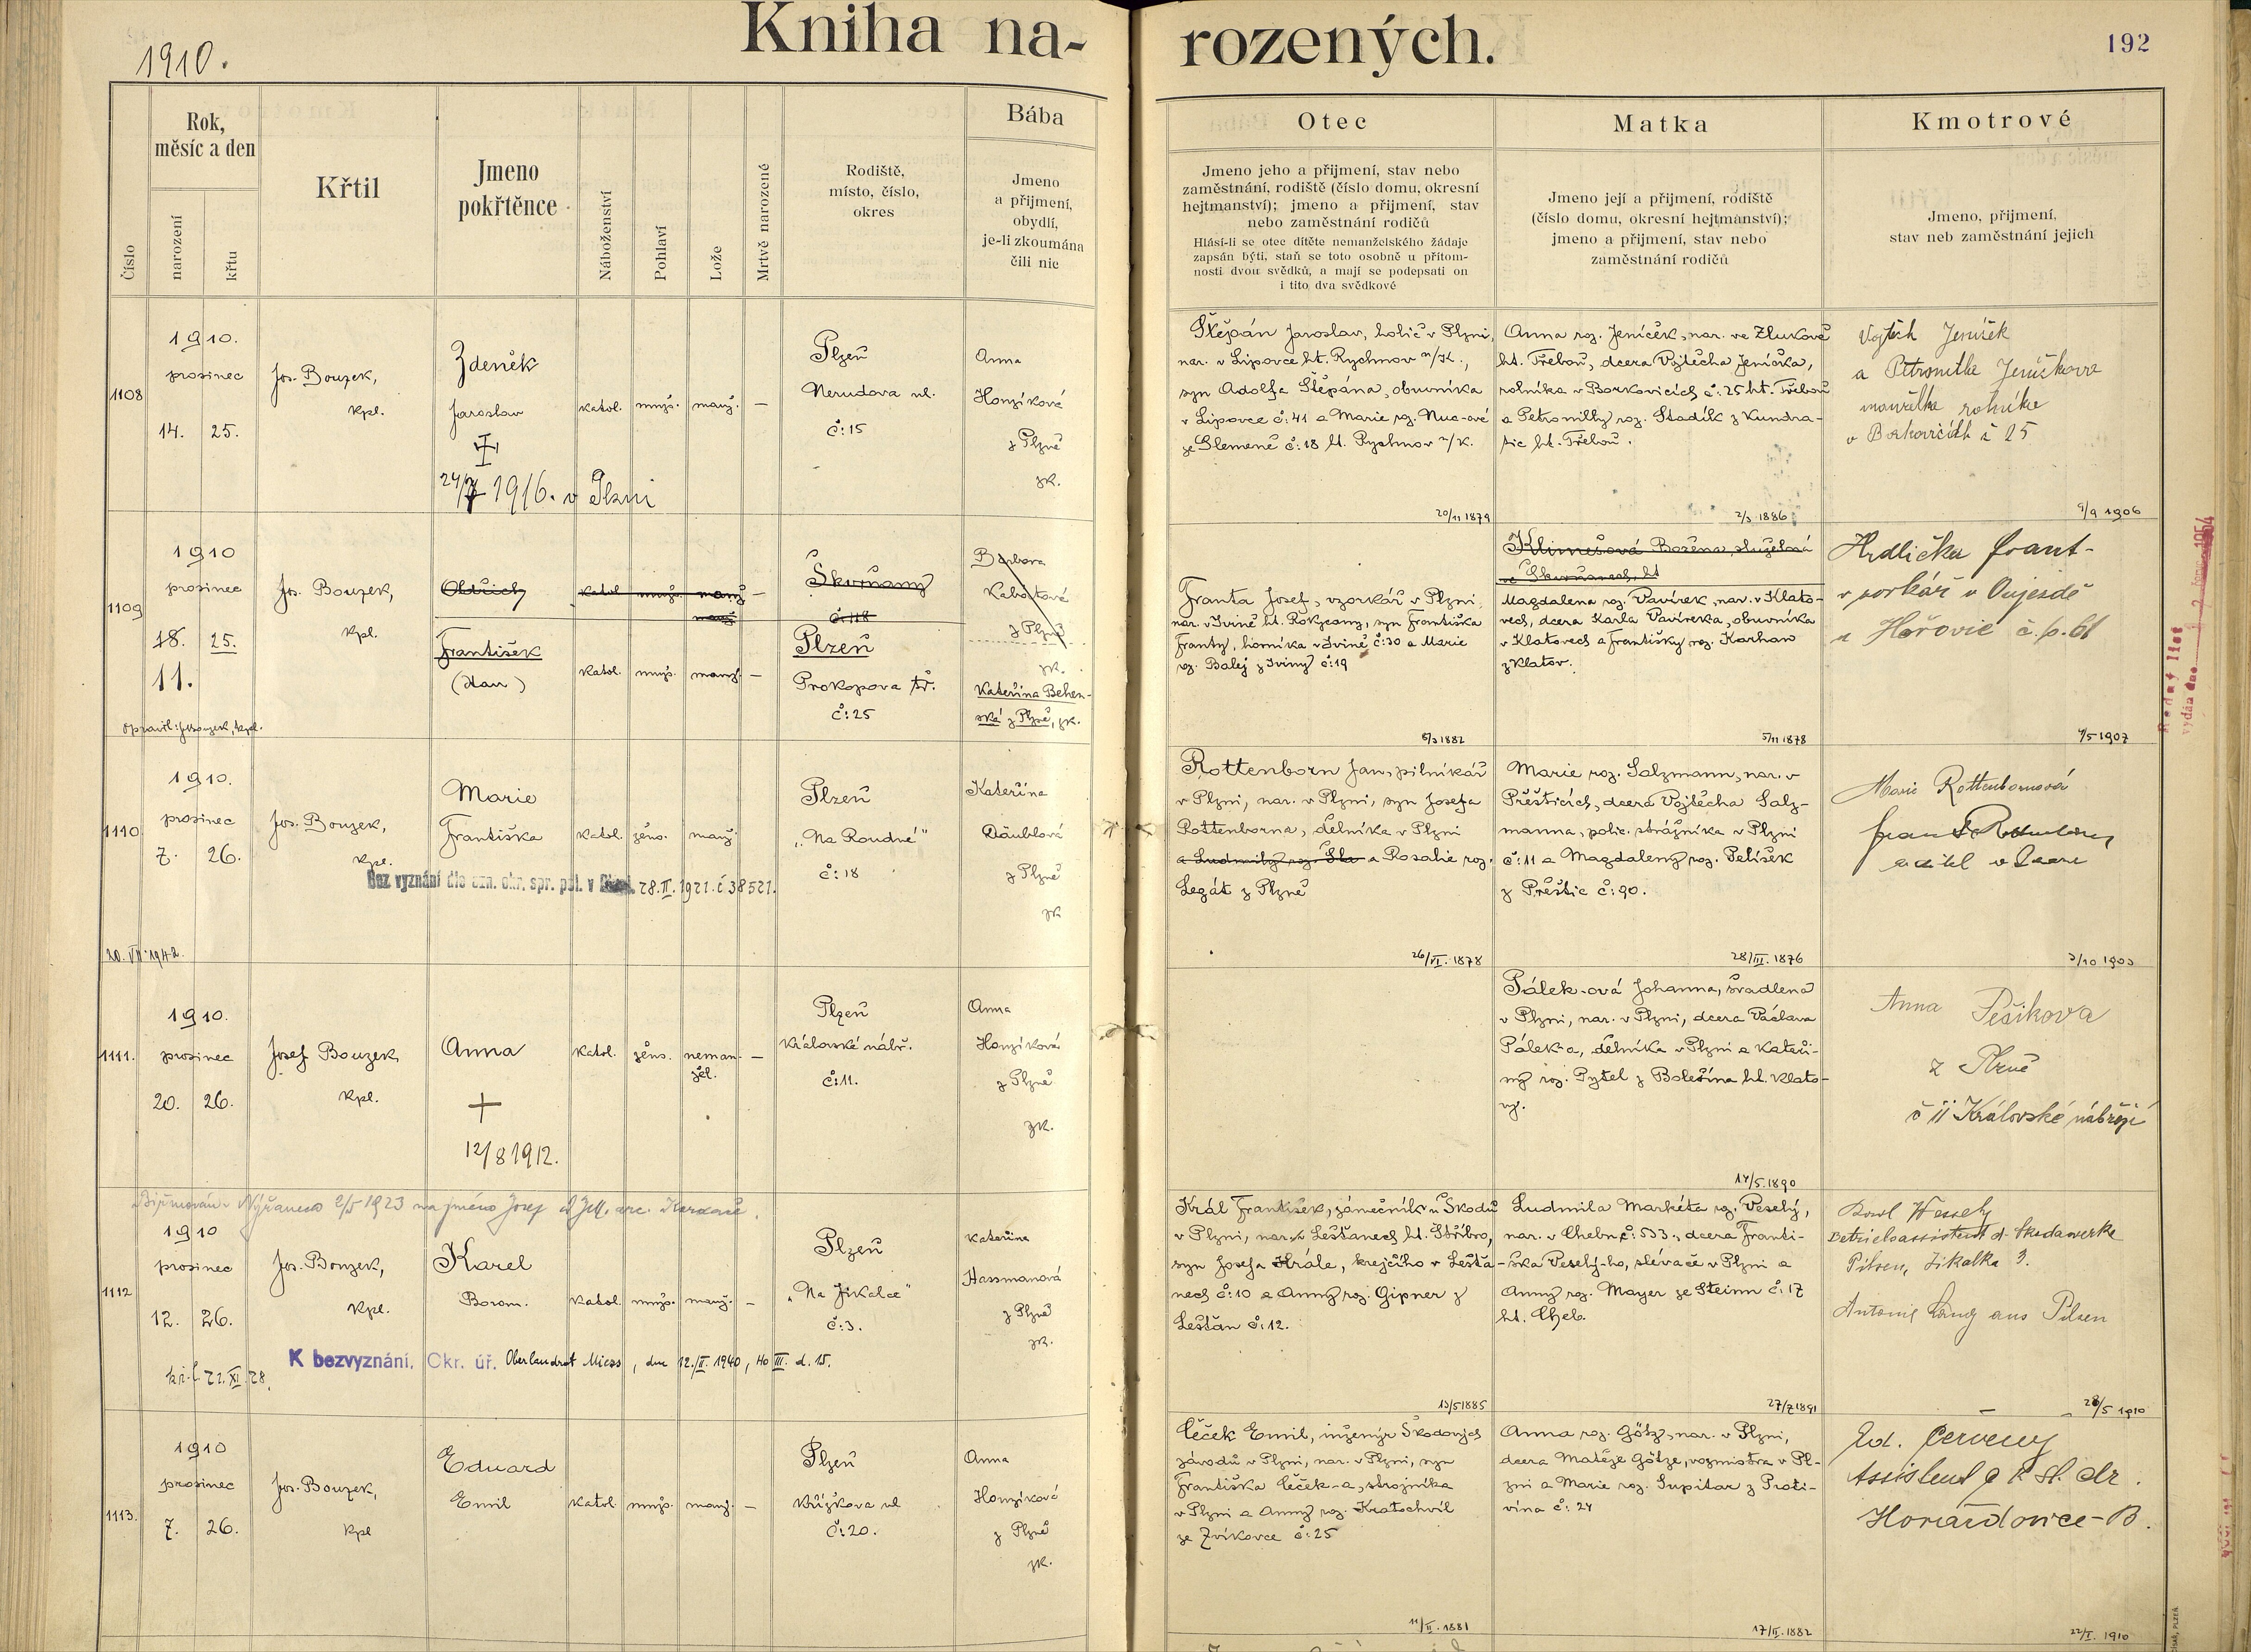 Kniha na-
rozených.
192
1910.
Číslo
Rok,
měsíc a den
narození
křtu
Křtil
Jmeno
pokřtěnce
Náboženství
Pohlaví
Lože
Mrtvě narozené
Rodiště,
místo, číslo,
okres
Bába
Jmeno
a přijmení,
obydlí,
je-li zkoumána
čili nic
Otec
Jmeno jeho a přijmení, stav nebo
zaměstnání, rodiště (číslo domu, okresní
hejtmanství); jmeno a přijmení, stav
nebo zaměstnání rodičů
Hlásí-li se otec dítěte nemanželského žádaje
zapsán býti, staň se toto osobně u přítom-
nosti dvou svědků, a mají se podepsati on
i tito dva svědkové
Matka
Jmeno její a přijmení, rodiště
(číslo domu, okresní hejtmanství);
jmeno a přijmení, stav nebo
zaměstnání rodičů
Kmotrové
Jmeno, přijmení,
stav neb zaměstnání jejich
1108
1910.
prosinec
14. 25.
Jos. Bouzek,
kpl.
Zdeněk
Jaroslav
1916. v Plzni
katol. mužs. manž. —
Plzeň
Nerudova ul.
č: 15
Anna
Honzíková
z Plzně
zk.
Štěpán Jaroslav, holič v Plzni,
nar. v Lipovce ht. Rychnov n/K.,
syn Adolfa Štěpána, obuvníka
v Lipovce č: 41 a Marie roz.
ze Slemene č: 18 ht. Rychnov n/K.
20/11 1879
Anna roz. Jeníček, nar. ve Zlukově
ht. Třeboň, dcera Vojtěcha Jeníčka,
rolníka v Borkovicích č: 25 ht. Třeboň
a Petronilly roz. Stadlík z Kundra-
tic ht. Třeboň.
2/3 1886
Vojtěch Jeníček
a Petronilla Jeníčkova
manželka rolníka
v Borkovicích č 25
9/9 1906
1109
1910
prosinec
18. 25.
11.
opravil: Jos. Bouzek, kpl.
Jos. Bouzek,
kpl.
Oldřich
František
(Dan)
katol. mužs. manž. —
manž.
katol. mužs. manž. —
Škvrňany
č: 118
Plzeň
Prokopova tř.
č: 25
Barbora
z Plzně
zk.
Kateřina Behen-
ská z Plzně, zk.
Franta Josef, vzorkář v Plzni,
nar. v Ivině ht. Rokycany, syn Františka
Franty, horníka v Ivině č: 30 a Marie
roz. Balej z Iviny č: 19
6/3 1882
Klimešová Božena, služebná
ve Škvrňanech, ht
Magdalena roz. Vavírek, nar. v Klato-
vech, dcera Karla Vavírka, obuvníka
v Klatovech a Františky roz. Karhan
z Klatov.
5/11 1878
Hrdlička Frant-
vzorkář v Oujezdě
u Hořovic č. p. 61
4/5 1907
Rodný list
vydán dne
1954
1110
1910.
prosinec
7. 26.
20. VII. 1942.
Jos. Bouzek,
kpl.
Marie
Františka
katol. žens. manž.
Plzeň
„Na Roudné"
č: 18
Kateřina
Däublová
z Plzně
zk
Bez vyznání dle ozn. okr. spr. pol. v 28. II. 1921. č 38521.
Rottenborn Jan, pilníkář
v Plzni, nar. v Plzni, syn Josefa
Rottenborna, dělníka v Plzni
a Ludmily roz. a Rosalie roz.
Legát z Plzně
26/VI. 1878
Marie roz. Salzmann, nar. v
Přešticích, dcera Vojtěcha Salz-
manna, polic. strážníka v Plzni
č: 11 a Magdaleny roz. Pelíšek
z Přeštic č: 90.
28/III. 1876
Marie Rottenbornová
3/10 1903
1111.
1910.
prosinec
20. 26.
Josef Bouzek,
kpl.
Anna
12/8 1912.
katol. žens. neman- —
žel.
Plzeň
Královské nábř.
č: 11.
Anna
Honzíková
z Plzně
zk.
Pálek-ová Johanna, švadlena
v Plzni, nar. v Plzni, dcera Václava
Pálek-a, dělníka v Plzni a Kateři-
ny roz. Pytel z Bolešína ht. Klato-
vy.
14/5 1890
Anna Pešikova
z Plzně
č 11 Královské nábřeží
1112
Biřmován v Nýřanech 2/5 1923 na jméno Josef
1910
prosinec
12. 26.
Jos. Bouzek,
kpl.
Karel
Borom.
katol. mužs. manž. —
Plzeň
„Na Jikalce"
č: 3.
Kateřina
Hassmanová
z Plzně
zk.
K bezvyznání, Okr. úř. Oberlandrat Mies, dne 12./II. 1940, 40 III. d. 15.
Král František, zámečník u Škodů
v Plzni, nar. v Lešťanech ht. Stříbro,
syn Josefa Krále, krejčího v Lešťa-
nech č: 10 a Anny roz. Gipner z
Lešťan č: 12.
13/5 1885
Ludmila Markéta roz. Veselý,
nar. v Chebu č: 553., dcera Franti-
ška Veselý-ho, slévače v Plzni a
Anny roz. Mayer ze Steinu č: 17
ht. Cheb.
27/7 1891
Karl Wessely
Betriebsassistent d. Skodawerke
Pilsen, Jikalka 3.
Antonie Lang aus Pilsen
28/5 1910
1113.
1910
prosinec
7. 26.
Jos. Bouzek,
kpl
Eduard
Emil
katol. mužs. manž. —
Plzeň
Křižíkova ul
č: 20.
Anna
Honzíková
z Plzně
zk.
Čeček Emil, inženýr Škodových
závodů v Plzni, nar. v Plzni, syn
Františka Čeček-a, strojníka
v Plzni a Anny roz. Kratochvíl
ze Zvíkovce č: 25
11/II. 1881
Anna roz. Götz, nar. v Plzni,
dcera Matěje Götze, vozmistra v Pl-
zni a Marie roz. Supitar z Proti-
vína č: 24
17/II. 1882
Ed. Červený
Assistent k. k. st. dr.
Horažďovice-B.
22/I. 1910